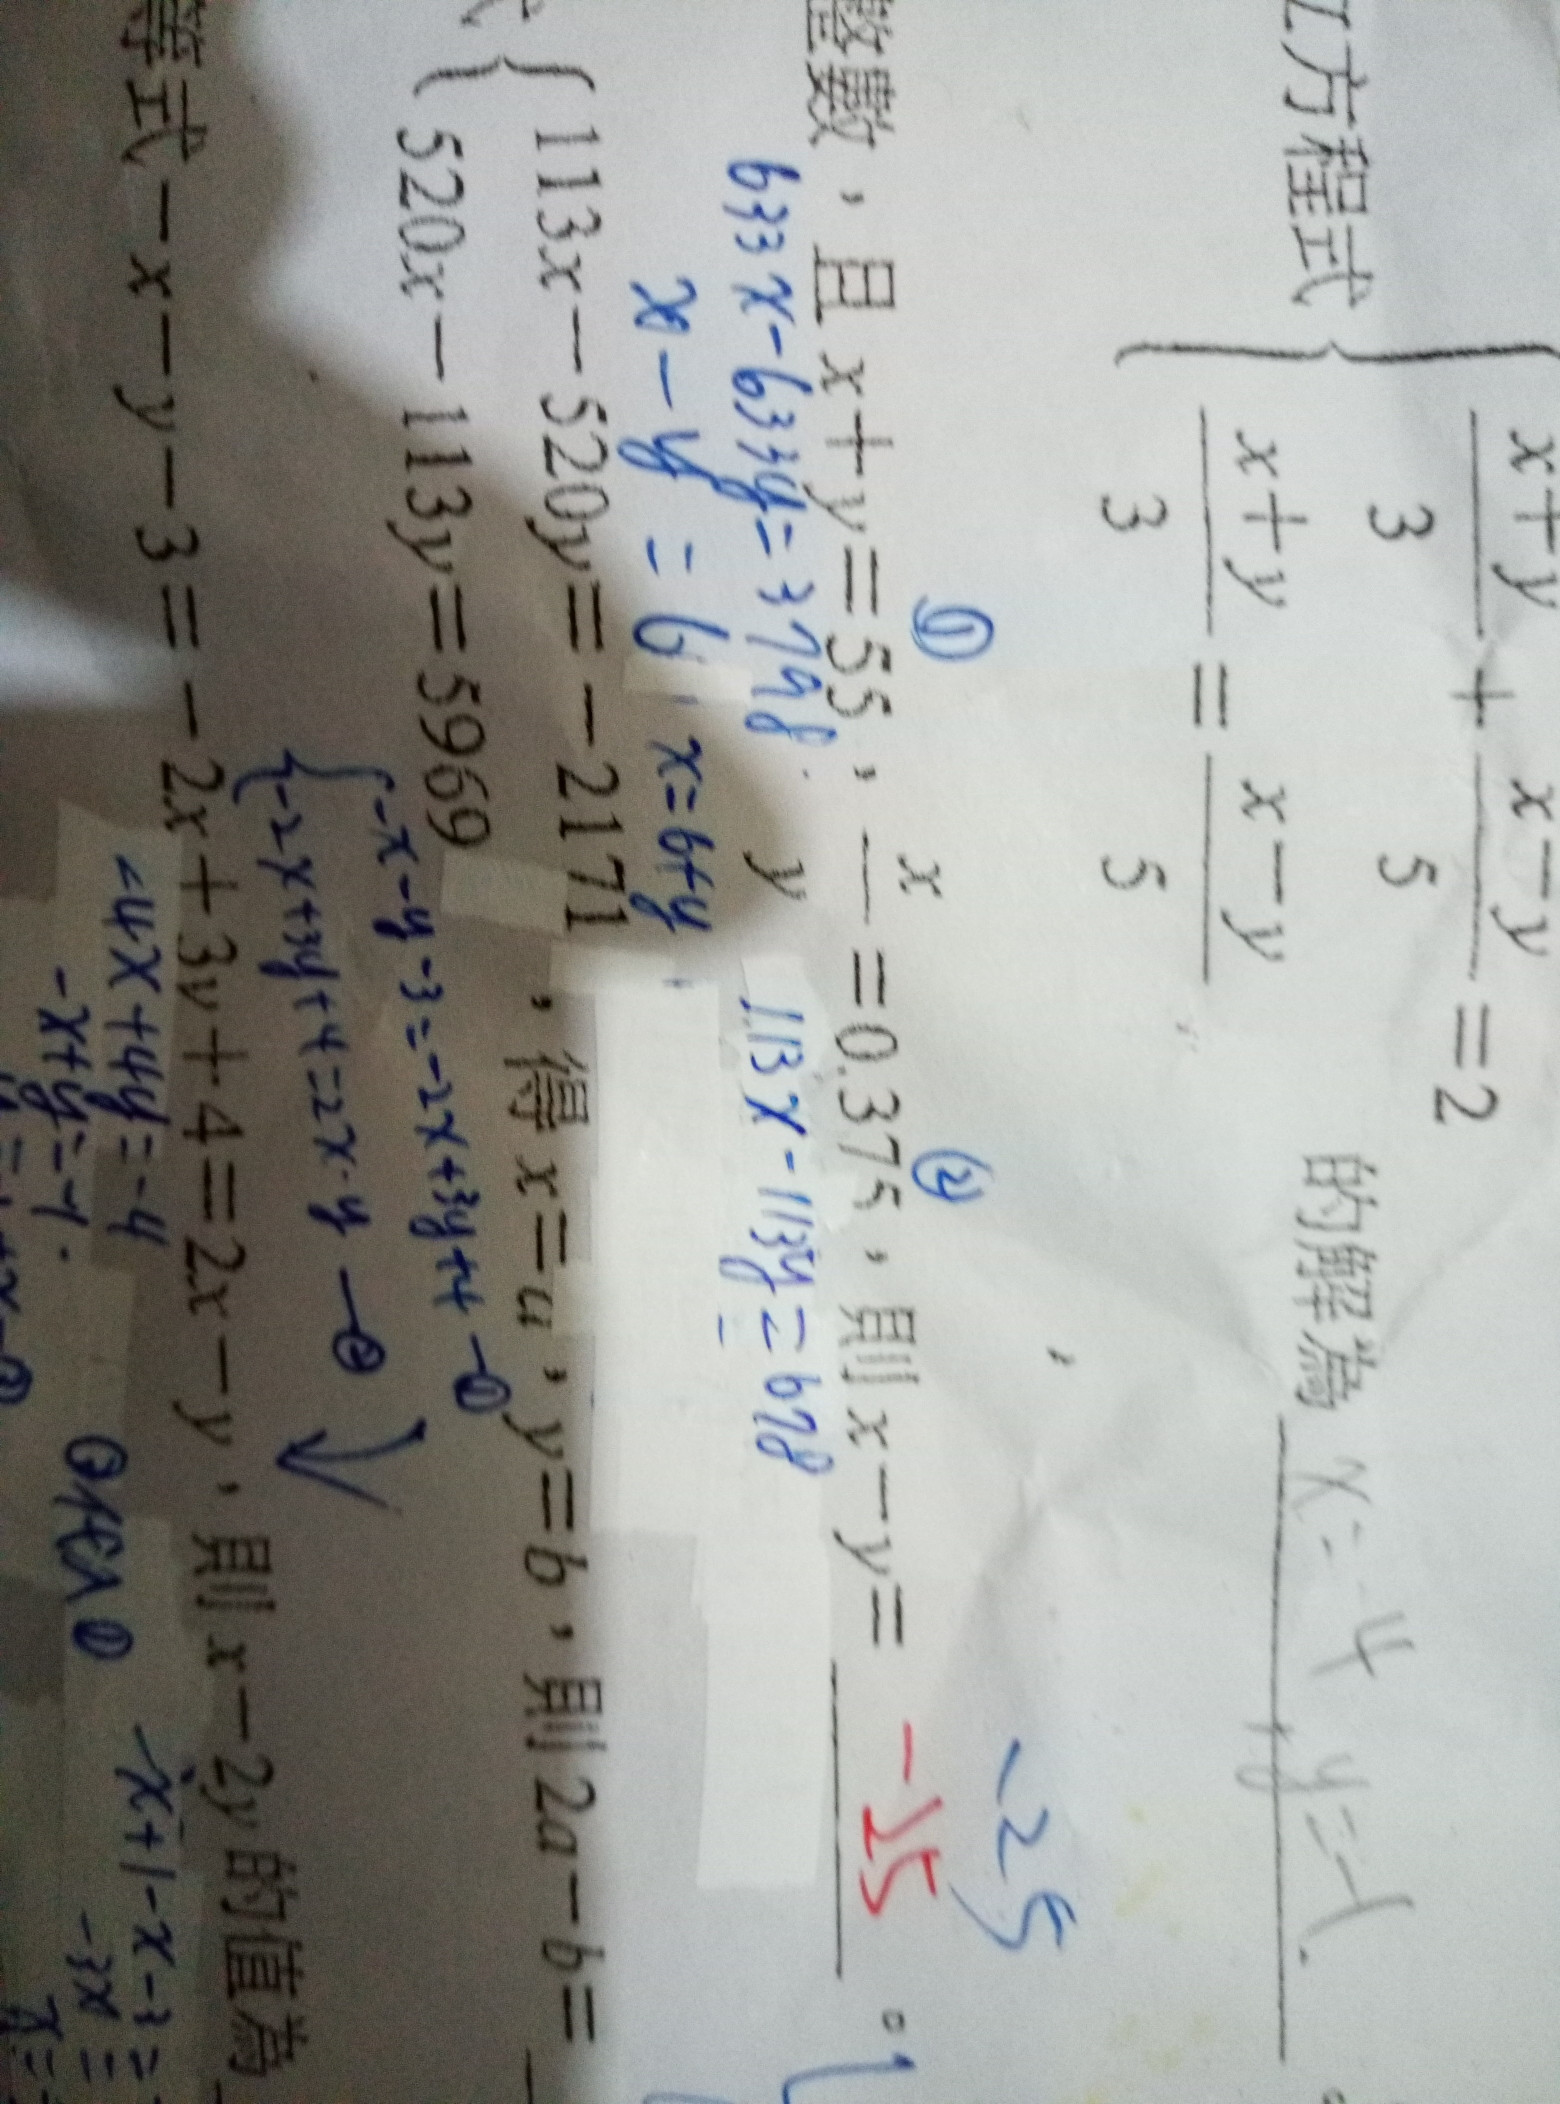 方程式 { x+y/3 + x-y/5 = 2
x+y/3 = x-y/5 的解為 x=4 y=-1.
① ② -25
整數,且x+y=55,x/y=0.375,則x-y= -15 。
633x-633y=3798. 113x-113y=678
x-y=6 x=6+y
{ 113x-520y=-2171
520x-113y=5969 ,得x=a,y=b,則2a-b=
{ -x-y-3=-2x+3y+4 —①
-2x+3y+4=2x-y —②
等式-x-y-3=-2x+3y+4=2x-y,則x-2y的值為
-4x+4y=-4
-x+y=-1.
-x+1-x-3=
-3x=